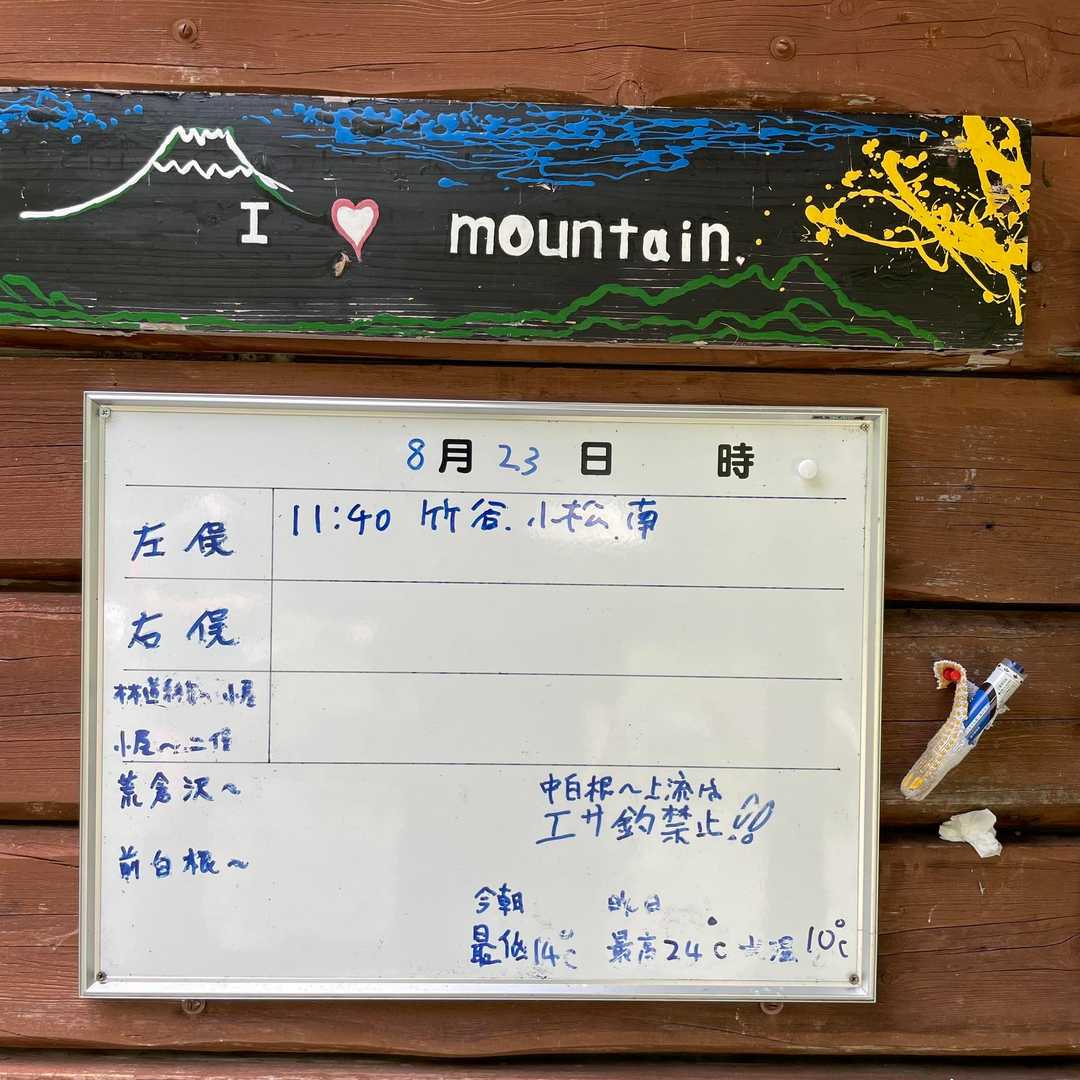 I ♥ mountain.
8月23日 時
左俣 11:40 竹谷.小松 南
右俣
林道終点〜小屋
小屋〜二俣
荒倉沢〜
前白根〜
中白根〜上流は
エサ釣禁止!!
今朝 昨日
最低14℃ 最高24℃ 水温10℃